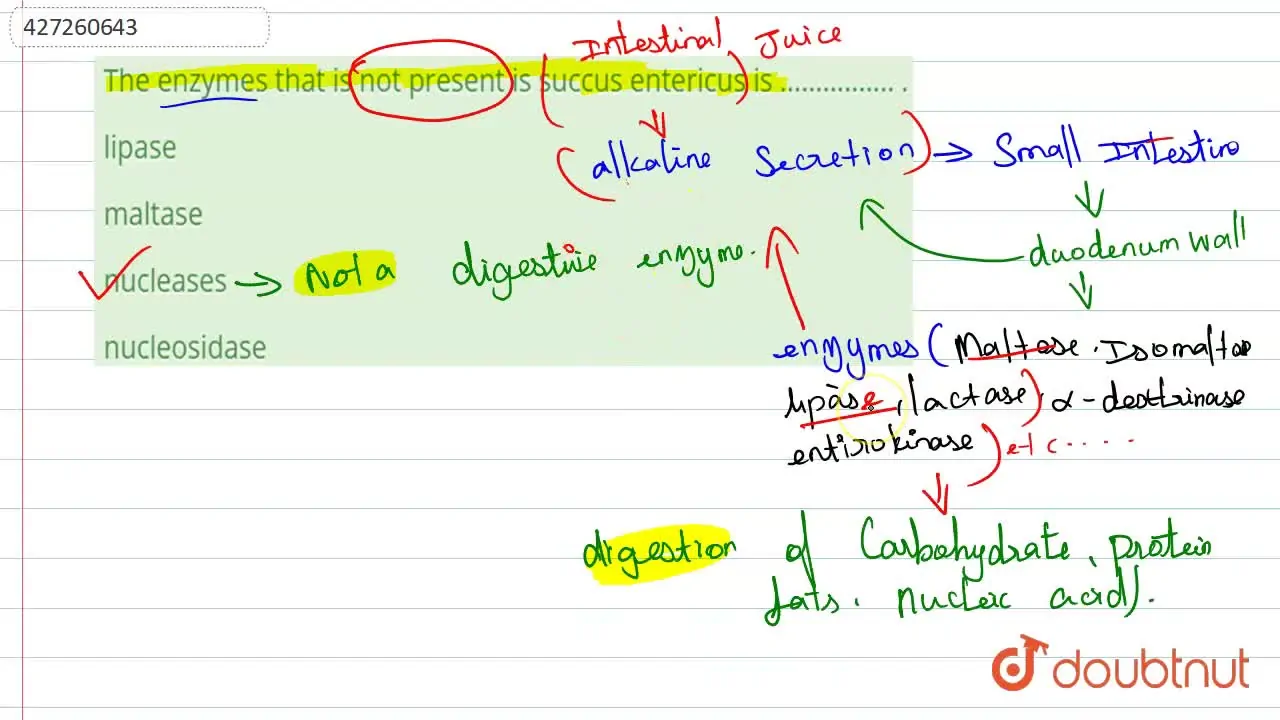 427260643
Intestinal Juice
The enzymes that is not present is succus entericus is ................ .
lipase
(alkaline Secretion) → Small Intestine
maltase
duodenum wall
nucleases → Not a digestive enzyme.
nucleosidase
enzymes (Maltase. Isomaltase
lipase, lactase). α-
etc.....
digestion of Carbohydrate, protein
fats. nucleic acid).
doubtnut